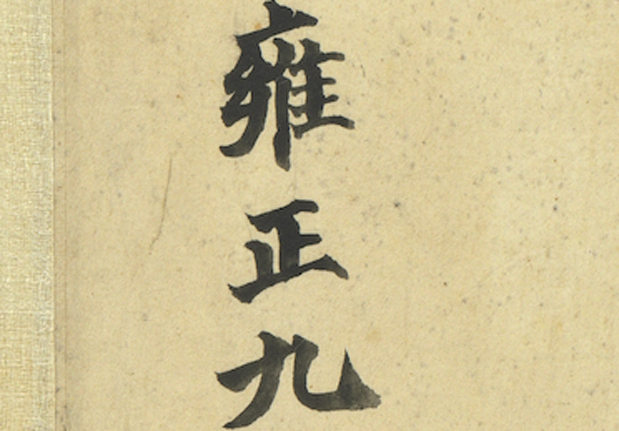 雍正九